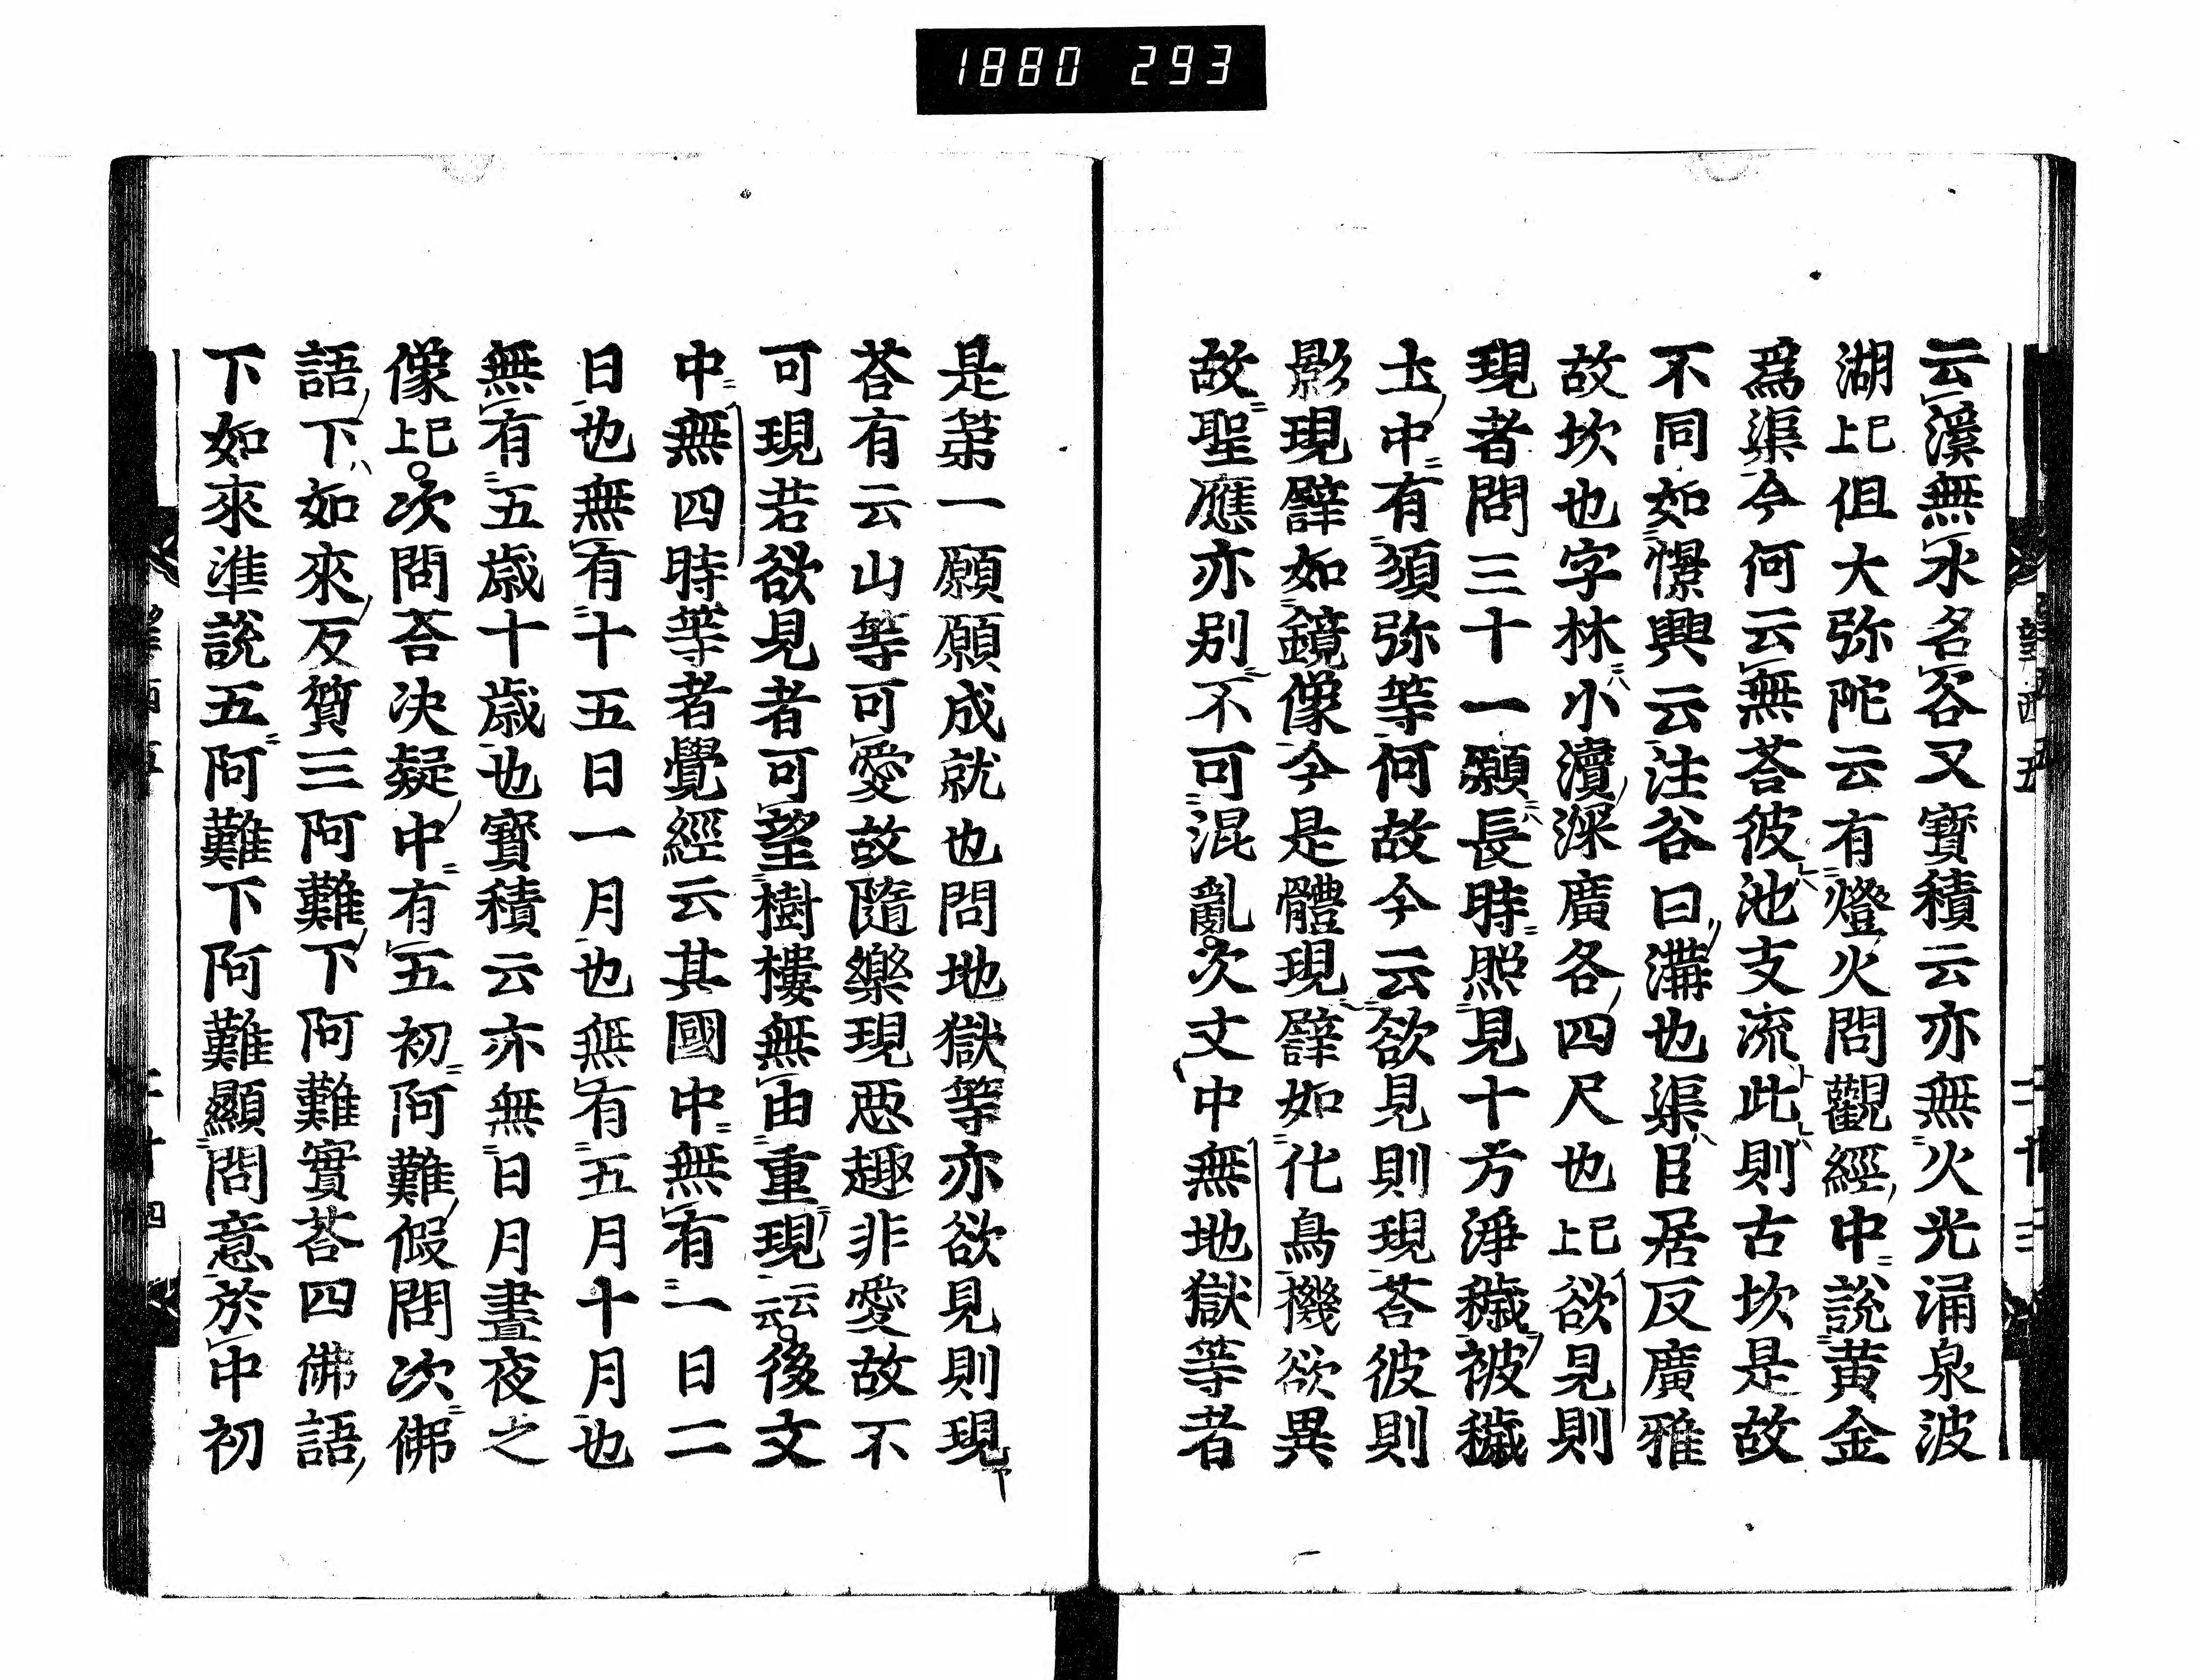 1880 293
云溪無水名谷又寶積云亦無火光涌泉波
湖已上但大弥陀云有燈火問觀經中説黄金
爲渠今何云無荅彼池支流此則古坎是故
不同如憬興云注谷曰溝也渠臣居反廣雅
故坎也字林小瀆深廣各四尺也已上欲見則
現者問三十一願長時照見十方淨穢被穢
土中有須弥等何故今云欲見則現荅彼則
影現譬如鏡像今是體現譬如化鳥機欲異
故聖應亦别不可混亂次文中無地獄等者
是第一願願成就也問地獄等亦欲見則現
荅有云山等可愛故隨樂現惡趣非愛故不
可現若欲見者可望樹樓無由重現云云後文
中無四時等者覺經云其國中無有一日二
日也無有十五日一月也無有五月十月也
無有五歲十歲也寶積云亦無日月晝夜之
像已上次問荅决疑中有五初阿難假問次佛
語下如來反質三阿難下阿難實荅四佛語
下如來準説五阿難下阿難顯問意於中初